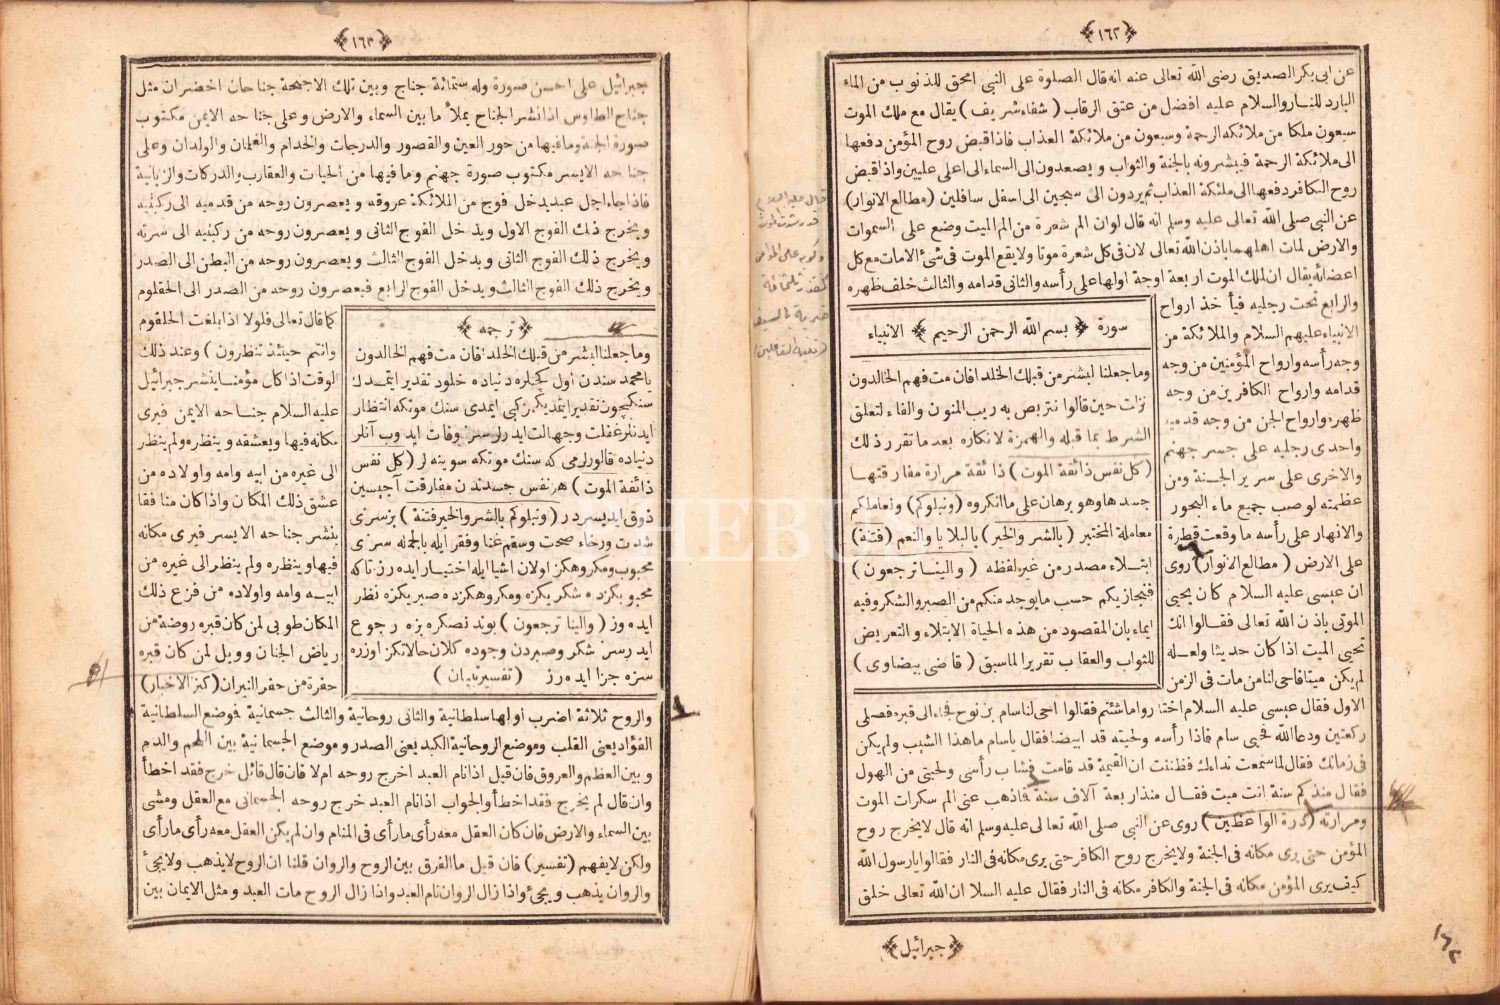 ﴿١٦٢﴾
عن ابى بكر الصديق رضى الله تعالى عنه انه قال الصلوة على النبى امحق للذنوب من الماء
البارد للنار والسلام عليه افضل من عتق الرقاب (شفاء شريف) يقال مع ملك الموت
سبعون ملكا من ملائكة الرحمة وسبعون من ملائكة العذاب فاذا قبض روح المؤمن دفعها
الى ملائكة الرحمة فيبشرونه بالجنة والثواب و يصعدون الى السماء الى اعلى عليين واذا قبض
روح الكافر دفعها الى ملئكة العذاب ثم يردون الى سجين الى اسفل سافلين (مطالع الانوار)
عن النبى صلى الله تعالى عليه وسلم انه قال لوان الم شعرة من الم الميت وضع على السموات
والارض لمات اهلهما باذن الله تعالى لان فى كل شعرة موتا ولا يقع الموت فى شئ الا مات مع كل
اعضائه يقال ان لملك الموت اربعة اوجه اولها على رأسه والثانى قدامه والثالث خلف ظهره
والرابع تحت رجليه فيأخذ ارواح
الانبياء عليهم السلام والملائكة من
وجه رأسه وارواح المؤمنين من وجه
قدامه وارواح الكافرين من وجه
ظهره وارواح الجن من وجه قدميه
واحدى رجليه على جسر جهنم
والاخرى على سرير الجنة ومن
عظمته لو صب جميع ماء البحور
والانهار على رأسه ما وقعت قطرة
على الارض (مطالع الانوار) روى
ان عيسى عليه السلام كان يحيى
الموتى باذن الله تعالى فقالوا انك
تحيى الميت اذا كان حديثا ولعله
لم يكن ميتا فاحى لنا من مات فى الزمن
سورة ﴿بسم الله الرحمن الرحيم﴾ الانبياء
وما جعلنا لبشر من قبلك الخلد افان مت فهم الخالدون
نزلت حين قالوا نتربص به ريب المنون والفاء لتعلق
الشرط بما قبله والهمزة لانكاره بعد ما تقرر ذلك
(كل نفس ذائقة الموت) ذائقة مرارة مفارقتها
جسدها وهو برهان على ما انكروه (ونبلوكم) ونعاملكم
معاملة المختبر (بالشر والخير) بالبلايا والنعم (فتنة)
ابتلاء مصدر من غير لفظه (والينا ترجعون)
فنجازيكم حسب ما يوجد منكم من الصبر والشكر وفيه
ايماء بان المقصود من هذه الحياة الابتلاء والتعريض
للثواب والعقاب تقريرا لما سبق (قاضى بيضاوى)
الاول فقال عيسى عليه السلام اختاروا ما شئتم فقالوا احى لنا سام بن نوح فجاء الى قبره فصلى
ركعتين ودعا الله فحيى سام فاذا رأسه ولحيته قد ابيضا فقال يا سام ما هذا الشيب ولم يكن
فى زمانك فقال لما سمعت نداءك فظننت ان القيمة قد قامت فشاب رأسى ولحيتى من الهول
فقال منذ كم سنة انت ميت فقال منذ اربعة آلاف سنة فاذهب عنى الم سكرات الموت
ومرارته (درة الواعظين) روى عن النبى صلى الله تعالى عليه وسلم انه قال لا يخرج روح
المؤمن حتى يرى مكانه فى الجنة ولا يخرج روح الكافر حتى يرى مكانه فى النار فقالوا يا رسول الله
كيف يرى المؤمن مكانه فى الجنة والكافر مكانه فى النار فقال عليه السلا ان الله تعالى خلق
﴿جبرائيل﴾
﴿١٦٣﴾
جبرائيل على احسن صورة وله ستمائة جناح وبين تلك الاجنحة جناحان اخضران مثل
جناح الطاوس اذا نشر الجناح يملأ ما بين السماء والارض وعلى جناحه الايمن مكتوب
صورة الجنة وما فيها من حور العين والقصور والدرجات والخدام والغلمان والولدان وعلى
جناحه الايسر مكتوب صورة جهنم وما فيها من الحيات والعقارب والدركات والزبانية
فاذا جاء اجل عبد يدخل فوج من الملائكة عروقه و يعصرون روحه من قدميه الى ركبتيه
و يخرج ذلك الفوج الاول ويدخل الفوج الثانى و يعصرون روحه من ركبتيه الى سرته
و يخرج ذلك الفوج الثانى و يدخل الفوج الثالث و يعصرون روحه من البطن الى الصدر
و يخرج ذلك الفوج الثالث و يدخل الفوج الرابع فيعصرون روحه من الصدر الى الحقلوم
﴿ترجمه﴾
وما جعلنا لبشر من قبلك الخلد افان مت فهم الخالدون
يا محمد سندن اول كچنلره دنياده خلود تقدير ايتمدك
سنكيچون تقدير ايتمديكمز كبى ايمدى سنك موتكه انتظار
ايدنلر غفلت وجهالت ايدرلر سن وفات ايدوب آنلر
دنياده قالورلرمى كه سنك موتكه سوينه لر (كل نفس
ذائقة الموت) هر نفس جسدندن مفارقت آجيسين
ذوق ايديسردر (ونبلوكم بالشر والخير فتنة) بز سزى
شدت ورخاء صحت وسقم غنا وفقر ايله بالجمله سزى
محبوب ومكروهكز اولان اشيا ايله اختيار ايده رز تاكه
محبوبكزده شكريكزه ومكروهكزده صبريكزه نظر
ايده وز (والينا ترجعون) بوند نصكره بزه رجوع
ايدرسز شكر وصبردن وجوده كلان حالاتكز اوزره
سزه جزا ايده رز (تفسير تبيان)
كما قال تعالى فلولا اذا بلغت الحلقوم
وانتم حينئذ تنظرون) وعند ذلك
الوقت اذا كان مؤمنا ينشر جبرائيل
عليه السلام جناحه الايمن فيرى
مكانه فيها ويعشقه و ينظره ولم ينظر
الى غيره من ابيه وامه واولاده من
عشق ذلك المكان واذا كان منافقا
ينشر جناحه الايسر فيرى مكانه
فيها و ينظره ولم ينظر الى غيره من
ابيه وامه واولاده من فزع ذلك
المكان طوبى لمن كان قبره روضة من
رياض الجنان وويل لمن كان قبره
حفرة من حفر النيران (كنز الاخبار)
والروح ثلاثة اضرب اولها سلطانية والثانى روحانية والثالث جسمانية فوضع السلطانية
الفؤاد يعنى القلب وموضع الروحانية الكبد يعنى الصدر و موضع الجسمانية بين اللحم والدم
و بين العظم والعروق فان قيل اذا نام العبد اخرج روحه ام لا فان قال قائل خرج فقد اخطأ
وان قال لم يخرج فقد اخطأ والجواب اذا نام العبد خرج روحه الجسمانى مع العقل ومشى
بين السماء والارض فان كان العقل معه رأى ما رأى فى المنام وان لم يكن العقل معه رأى ما رأى
ولكن لا يفهم (تفسير) فان قيل ما الفرق بين الروح والروان قلنا ان الروح لا يذهب ولا يجئ
والروان يذهب و يجئ واذا زال الروان نام العبد واذا زال الروح مات العبد و مثل الايمان بين